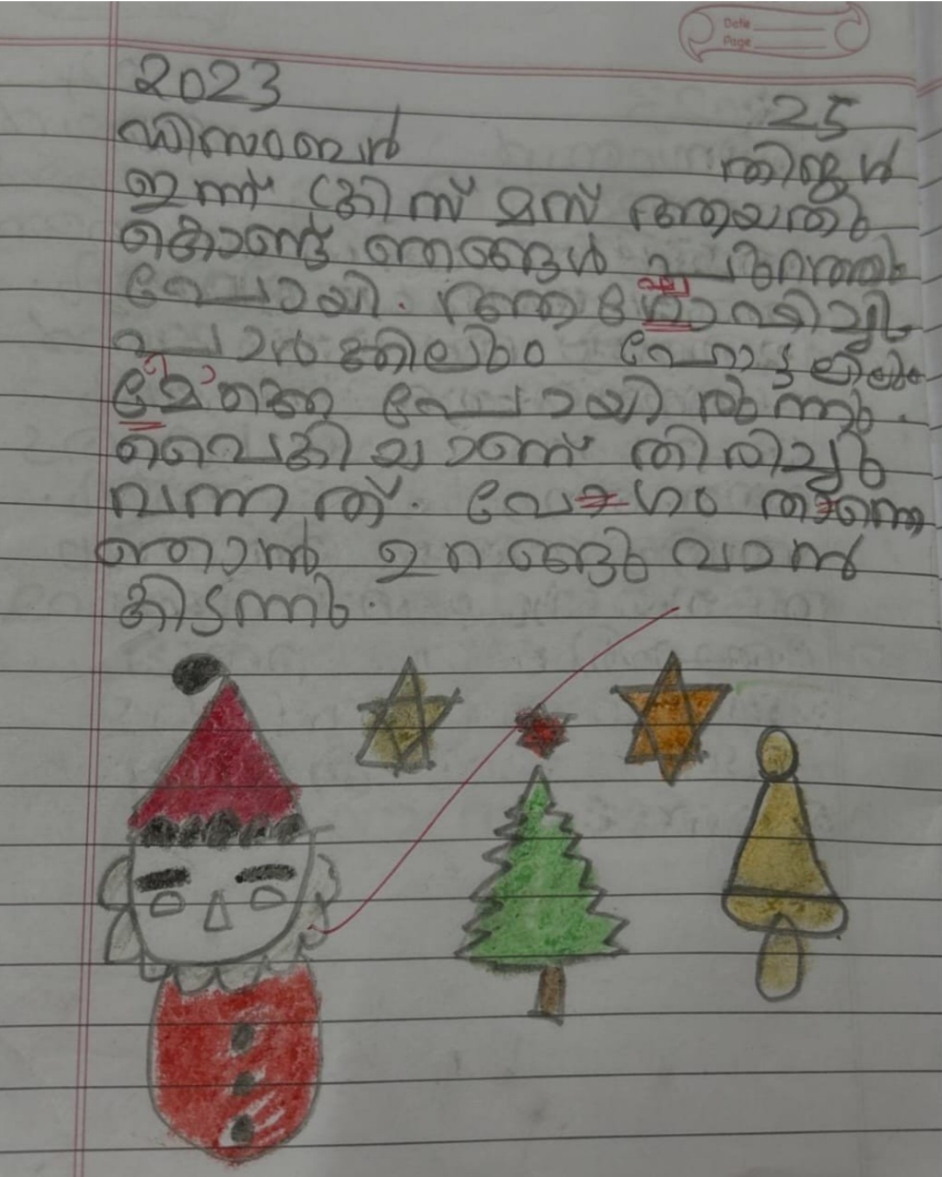 Date
Page
2023
25
ഡിസംബർ
തിങ്കൾ
ഇന്ന് ക്രിസ് മസ് ആയതു
കൊണ്ട് ഞങ്ങൾ പുറത്തു
പോയി.
പാർക്കിലും ഹോട്ടലിലും
പോയിരുന്നു.
വൈകിയാണ് തിരിച്ചു
വന്നത്. വേഗം തന്നെ
ഞാൻ ഉറങ്ങുവാൻ
കിടന്നു.